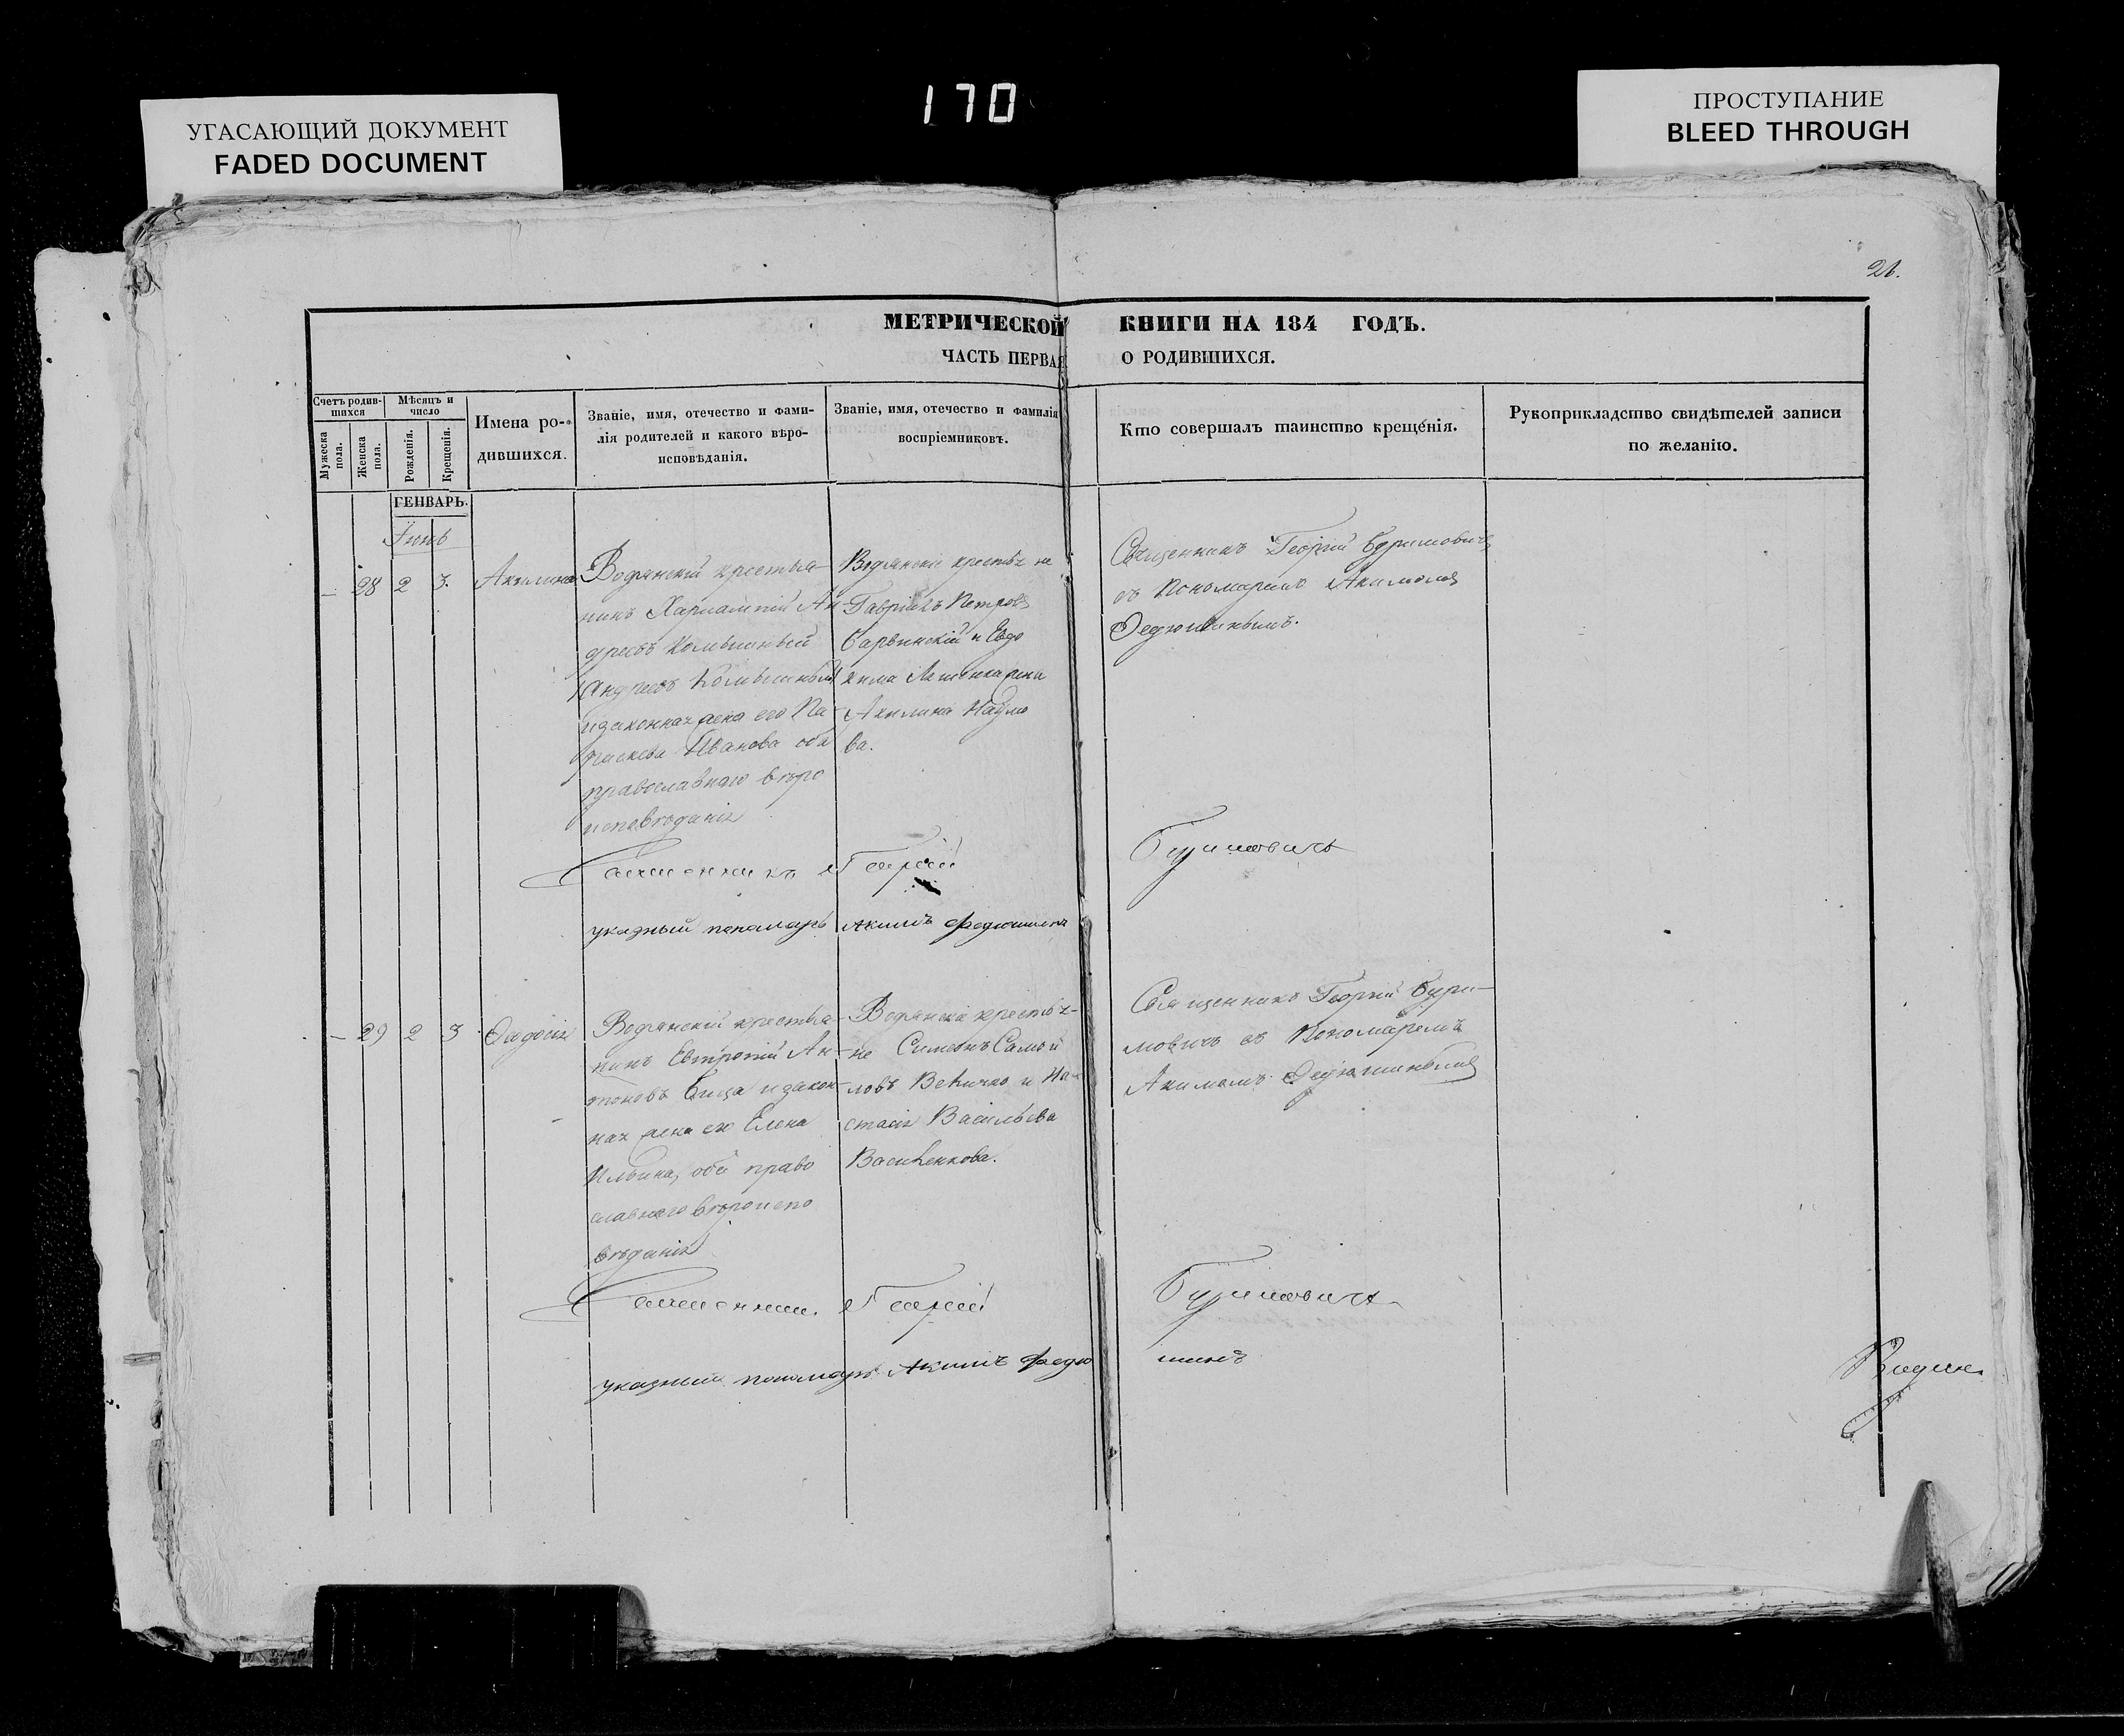 УГАСАЮЩИЙ ДОКУМЕНТ
FADED DOCUMENT
170
ПРОСТУПАНИЕ
BLEED THROUGH
МЕТРИЧЕСКОЙ КНИГИ НА 184 ГОДЪ.
ЧАСТЬ ПЕРВАЯ О РОДИВШИХСЯ.
Счетъ родив-
шихся
Мужеска
пола.
Женска
пола.
Мѣсяцъ и
число
Рожденія.
Крещенія.
Имена ро-
дившихся.
Званіе, имя, отечество и фами-
лія родителей и какого вѣро-
исповѣданія.
Званіе, имя, отечество и фамилія
воспріемниковъ.
Кто совершалъ таинство крещенія.
Рукоприкладство свидѣтелей записи
по желанію.
ГЕНВАРЬ.
28 2 3. Акилина
Водянскій крестья-
нинъ Харлампій Ан
дреевъ
Андреевъ
изаконная жена его Па
раскева Иванова оба
православнаго вѣро
исповѣданія
Водянскіе крестья не
Гавріилъ Петровъ
и Евдо
кима
Акилина Наумо
ва.
Священникъ Георгій
съ Пономаремъ Акимомъ
Федюшинымъ.
Священникъ Георгій
указный пономарь Акимъ Федюшинъ
29 2 3 Федосія
Водянскій крестья-
нинъ Евтропій Ан-
тоновъ изакон-
ная жена его Елена
Ильина, оба право
славнаго вѣроиспо
вѣданія
Водянскіе крестья-
не Симеонъ Самой
ловъ Величко и На-
стасія Васильева
Василенкова.
Священникъ Георгій Бури-
мовичъ съ Пономаремъ
Акимомъ Федюшинымъ
Георгій Буримовичъ
указный пономарь Акимъ Федю
шинъ